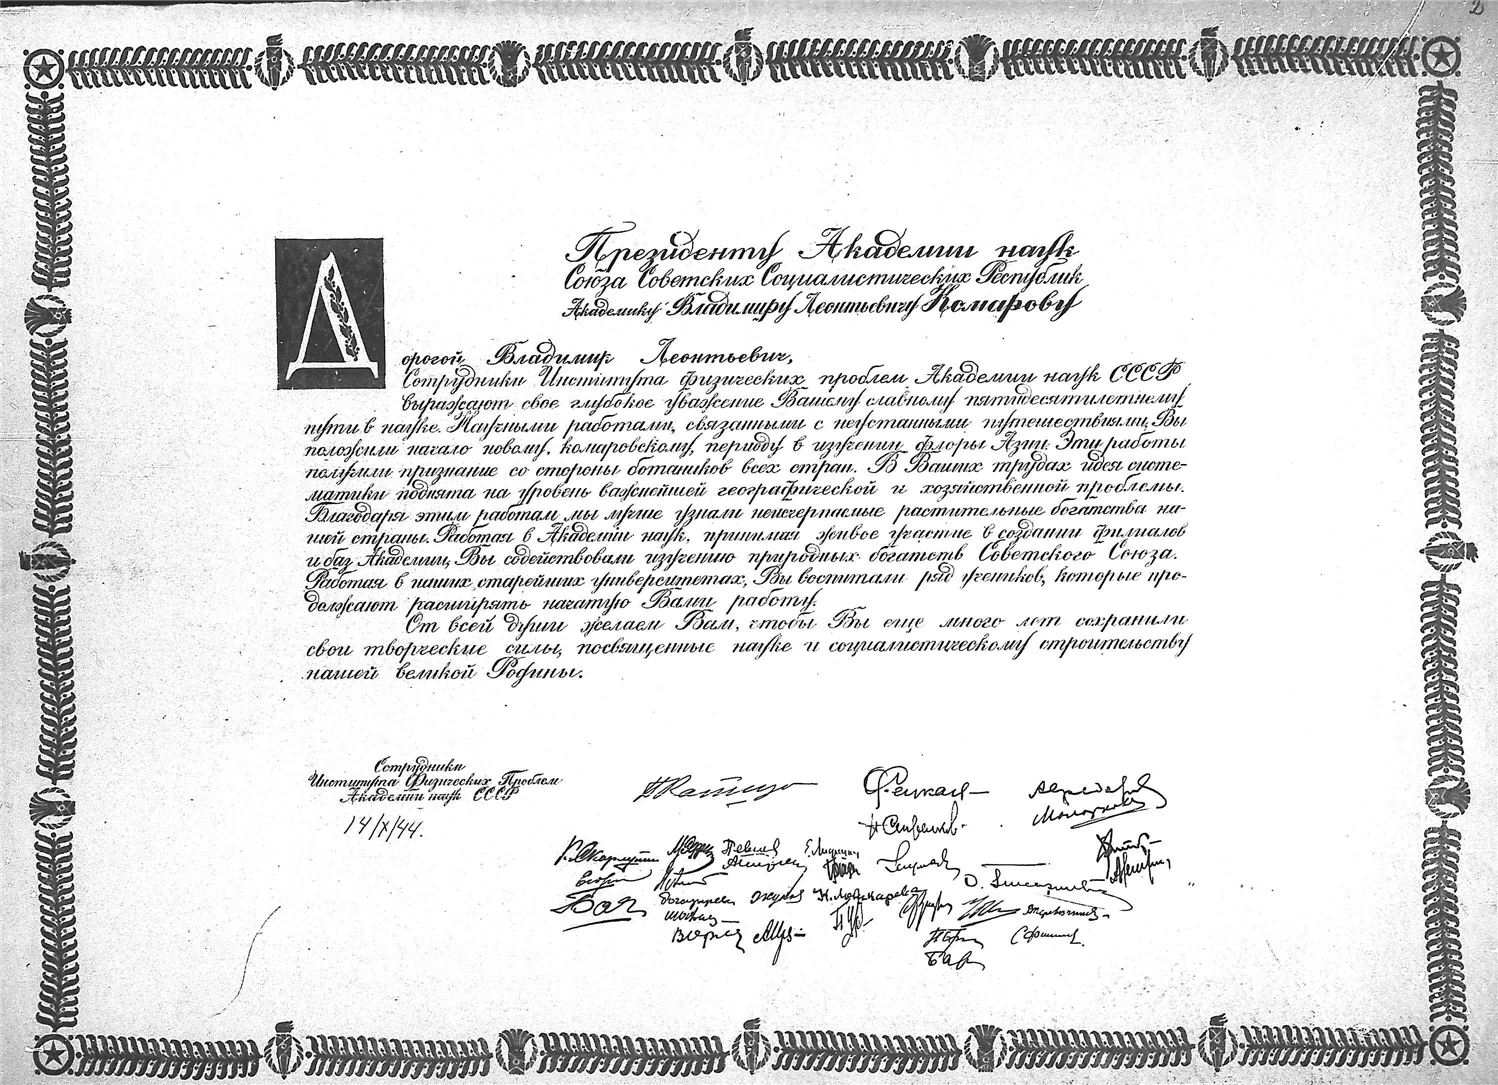 2
Президенту Академии наук
Союза Советских Социалистических Республик
Академику Владимиру Леонтьевичу Комарову
Дорогой Владимир Леонтьевич,
Сотрудники Института физических проблем Академии наук СССР
выражают свое глубокое уважение Вашему славному пятидесятилетнему
пути в науке. Научными работами, связанными с неустанными путешествиями, Вы
положили начало новому, комаровскому, периоду в изучении флоры Азии. Эти работы
получили признание со стороны ботаников всех стран. В Ваших трудах идея систе-
матики поднята на уровень важнейшей географической и хозяйственной проблемы.
Благодаря этим работам мы лучше узнали неисчерпаемые растительные богатства на-
шей страны. Работая в Академии наук, принимая живое участие в создании филиалов
и баз Академии, Вы содействовали изучению природных богатств Советского Союза.
Работая в наших старейших университетах, Вы воспитали ряд учеников, которые про-
должают расширять начатую Вами работу.
От всей души желаем Вам, чтобы Вы еще много лет сохранили
свои творческие силы, посвященные науке и социалистическому строительству
нашей великой Родины.
Сотрудники
Института Физических Проблем
Академии наук СССР
14/X/44.
П Капица